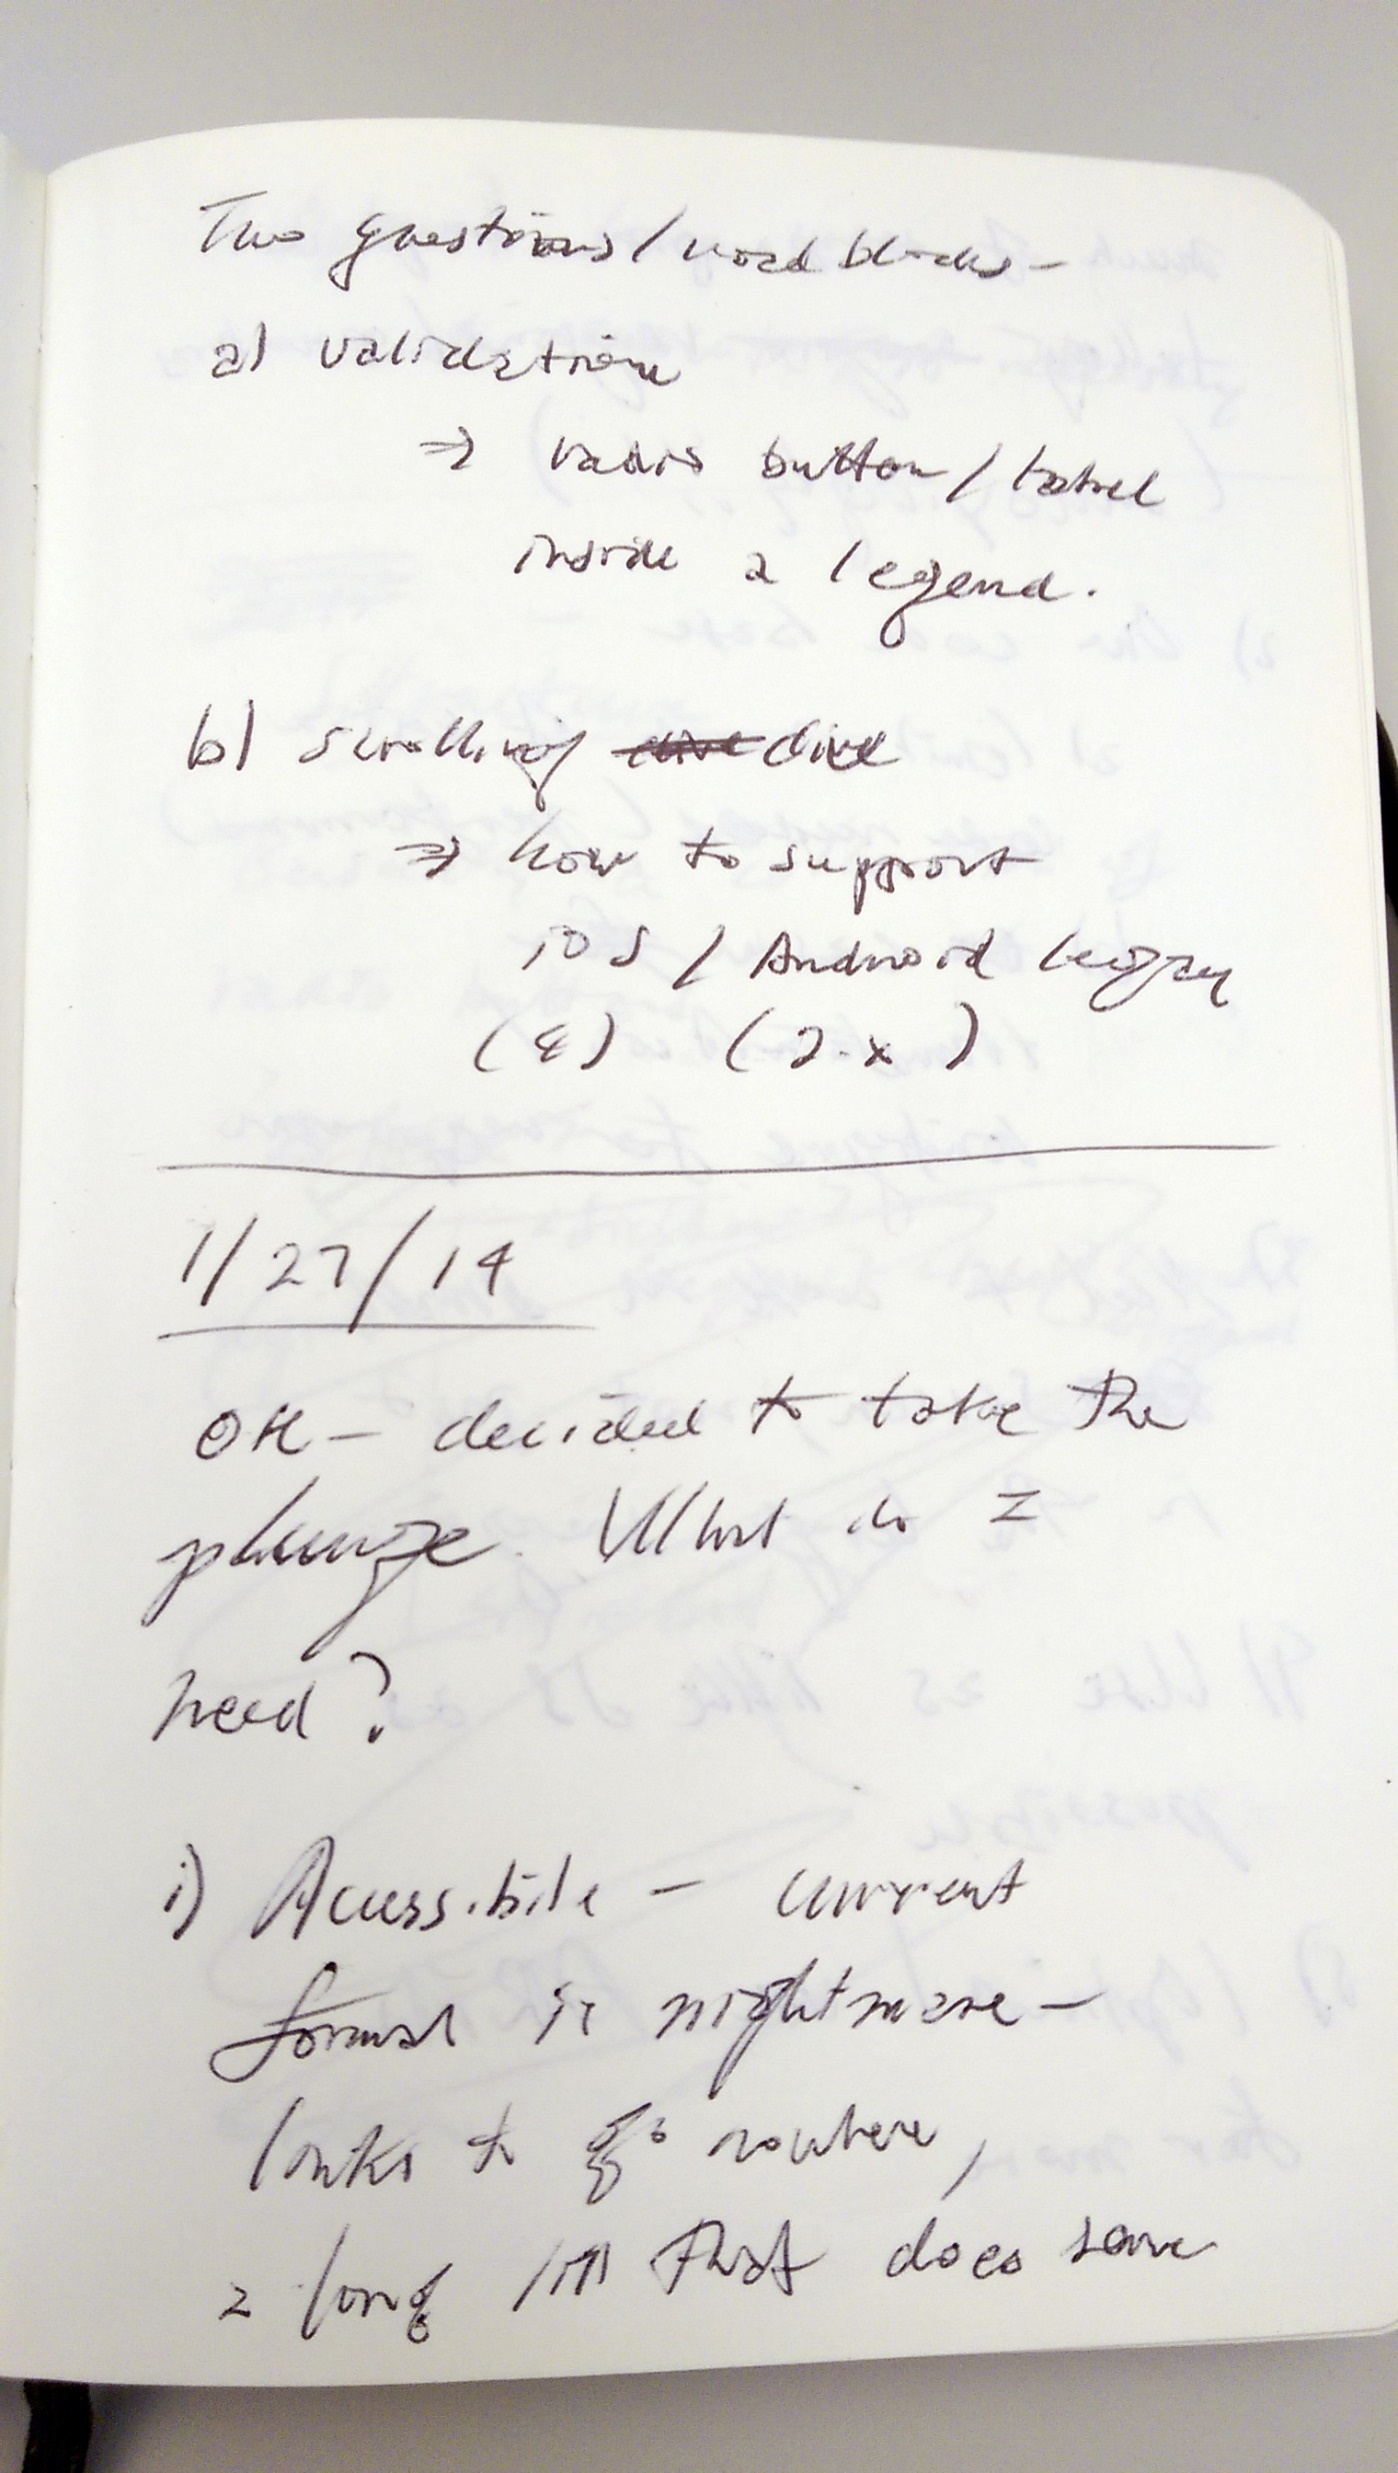 Two questions / road blocks -
a) validation
⇒ radio button / label
inside a legend.
b) scrolling divs
⇒ how to support
iOS / Android legacy
(4) (2.x)
1/27/14
OK - decided to take the
plunge. What do I
need?
1) Accessible - current
format is nightmare -
links to go nowhere,
a long list that does